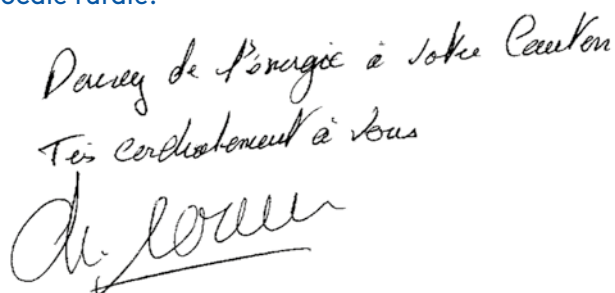 ocale rurale.
Donnez de l'énergie à votre Canton
Très cordialement à vous